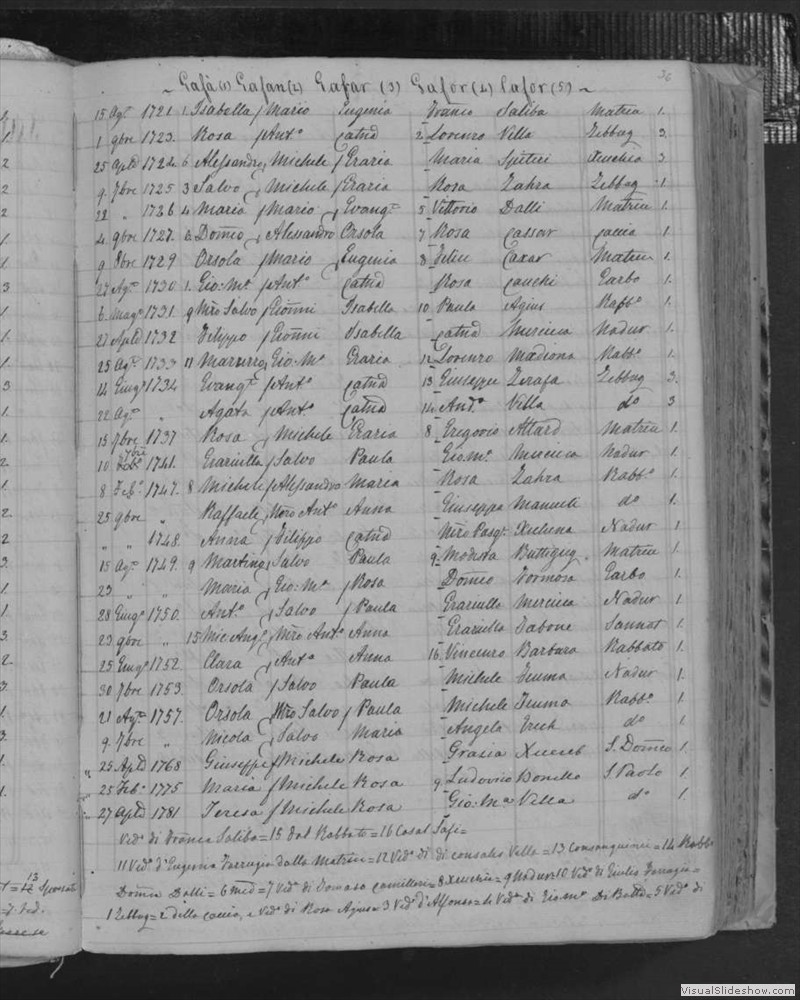 36
~ Gafà (1) Gafan (2) Gafar (3) Gafor (4) Cafor (5) ~
15 Ag.º 1721 1. Isabella / Mario Eugenia Franco Saliba Matrice 1.
1 9bre 1723. Rosa / Ant.º Catnd 2 Lorenzo Vella Zebbug 3.
25 Aple 1724 6 Alessandro, Michele / Grazia Maria Spiteri Xeuchia 3
9. 7bre 1725 3 Salvo / Michele / Grazia Rosa Zahra Zebbug 1.
22 " 1726 4 Mario / Mario / Evang.ª 5 Vittorio Dalli Matrice 1.
4. 9bre 1727. 2. Domco / Alessandro Orsola 7 Rosa Cassar Caccia 1.
9 8bre 1729 Orsola / Mario / Eugenia 8 Felice Caxar Matrice 1.
27 Ag.º 1730 1. Gio: M.ª / Ant.º Catnd Rosa Cauchi Garbo 1.
6. Magº 1731. 9 Mro Salvo / Gionni Isabella 10 Paula Agius Rabb.º 1.
27 Aple 1732 Filippo / Gionni Isabella Catnd Mercieca Nadur 1.
25 Ag.º 1733 11 Gio: M.ª Grazia 12 Lorenzo Madiona Rabb.º 1.
14 Giugº 1734 Evang.ª / Ant.º Catnd 13 Giuseppe Zerafa Zebbug 3.
22 Ag.º " Agata / Ant.º Catnd 14 And.ª Villa dº 3
13 7bre 1737 Rosa / Michele Grazia 8 Gregorio Attard Matrice 1.
10 7bre 1741. Graziulla / Salvo Paula Gio: M.ª Mercieca Nadur 1.
8 Feb.º 1747. 8 Michele / Alessandro Maria Rosa Zahra Rabb.º 1.
25 9bre " Raffaele / Mro Ant.º Anna Giuseppa Manueli dº 1.
" " 1748. Anna / Filippo Catnd Mro Pasq.e Xicluna Nadur 1.
15 Ag.º 1749. 9 Martino / Salvo Paula 9. Modesta Buttigieg Matrice 1.
23 " " Maria / Gio: M.ª / Rosa Domco Formosa Garbo 1.
28 Giugº 1750. Ant.º / Salvo / Paula Graziulla Mercieca Nadur 1.
23 9bre " 15 Mic Ang.º / Mro Ant.º Anna Graziulla Tabone Sannat 1.
25 Giugº 1752 Clara / Ant.º Anna 16. Vincenzo Barbara Rabbato 1.
30 7bre 1753. Orsola / Salvo Paula Michele Teuma Nadur 1.
21 Ag.º 1757. Orsola / Mro Salvo / Paula Michele Teuma Rabb.º 1.
9. 7bre " Nicola / Salvo Maria Angela Grech dº 1.
25 Aple 1768 Giuseppe / Michele Rosa Grazia Xuereb S. Domco 1.
25 Feb.º 1775 Maria / Michele Rosa 9 Ludovico Bonello S. Paolo 1.
27 Aple 1781 Teresa / Michele Rosa Gio. M.ª Vella dº 1.
Ved.ª di Franca Saliba = 15 Dal Rabbato = 16 Casal Safi =
11 Ved.º d'Eugenia Farrugia dalla Matrice = 12 Ved.ª di di Consalis Vella = 13 Consanguinei = 14 Rabbº
Domca Dalli = 6 med = 7 Ved.ª di Tomaso Camilleri = 8 Xeuchia = 9 Nadur = 10 Ved.ª di Giulio Farrugia =
1 Zebbug = 2 della Caccia, e Ved.º di Rosa Agius = 3 Ved.ª d'Alfonso = 4 Ved.º di Gio: M.ª Di Battª = 5 Ved.º di
VisualSlideshow.com